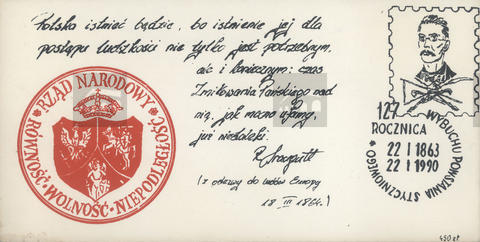 Polska istnieć będzie, bo istnienie jej dla
postępu ludzkości nie tylko jest potrzebnym,
ale i koniecznym; czas
Zmiłowania Pańskiego nad
nią, jak mocno ufamy,
już niedaleki.
R. Traugutt
(z odezwy do ludów Europy
18 III 1864.)
RZĄD NARODOWY
RÓWNOŚĆ * WOLNOŚĆ * NIEPODLEGŁOŚĆ
127
ROCZNICA
WYBUCHU POWSTANIA STYCZNIOWEGO *
22 I 1863
22 I 1990
450 zł